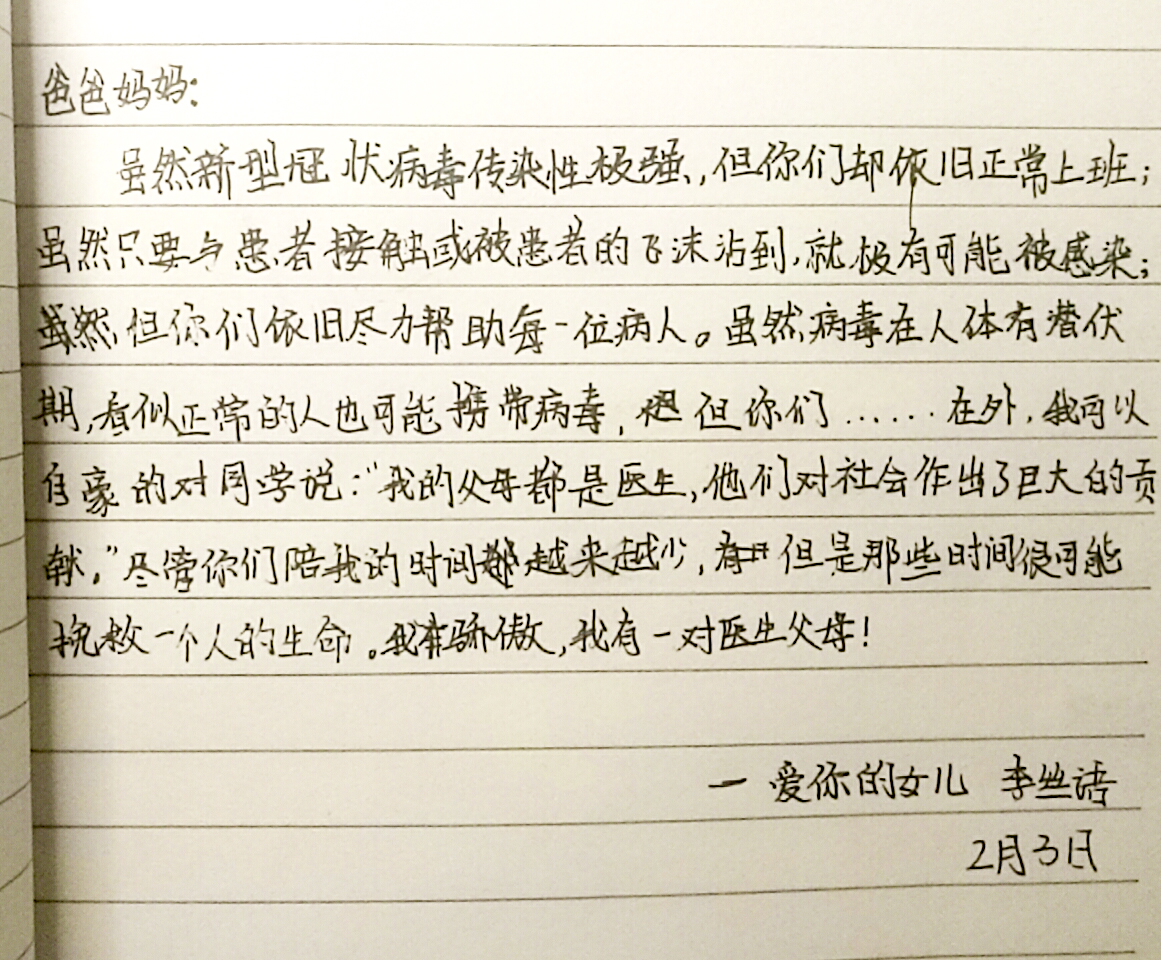 爸爸妈妈:
虽然新型冠状病毒传染性极强,但你们却依旧正常上班;
虽然只要与患者接触或被患者的飞沫沾到,就极有可能被感染;
但你们依旧尽力帮助每一位病人。虽然病毒在人体有潜伏
期,看似正常的人也可能携带病毒,但你们……在外,我可以
自豪的对同学说:“我的父母都是医生,他们对社会作出了巨大的贡
献。”尽管你们陪我的时间越来越少,但是那些时间很可能
挽救一个人的生命。我骄傲,我有一对医生父母!
— 爱你的女儿 李丝语
2月3日